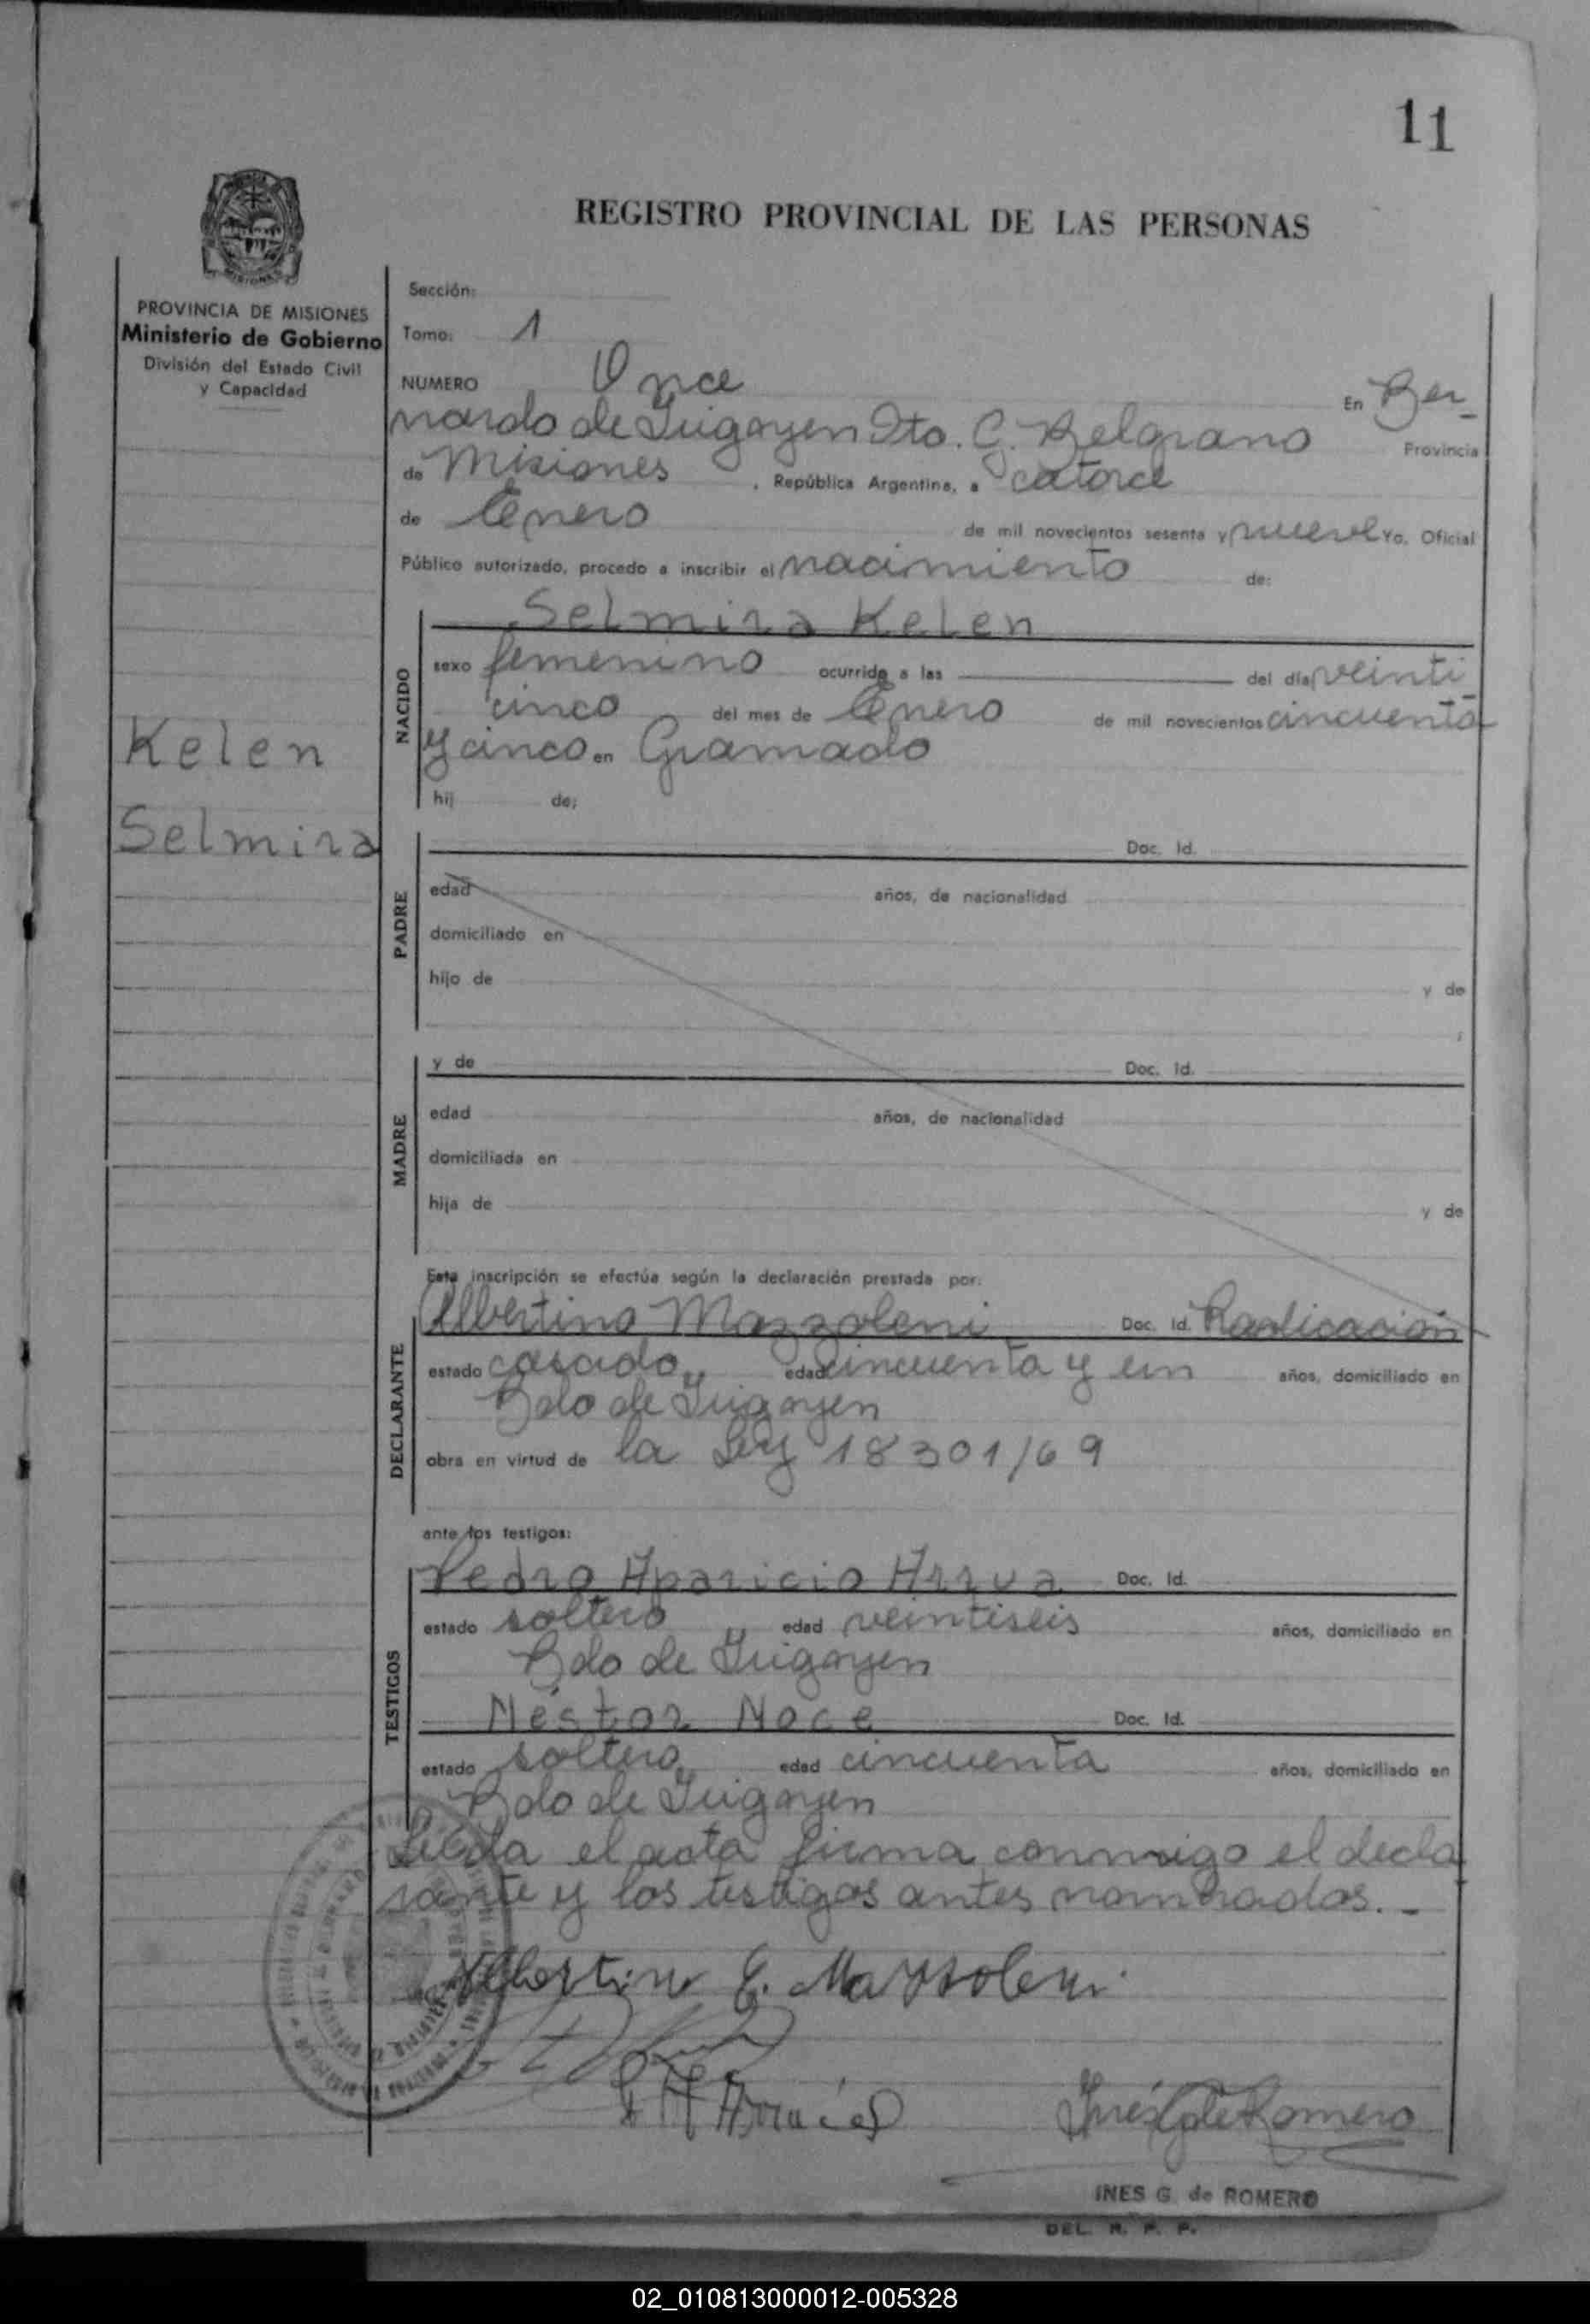 11
REGISTRO PROVINCIAL DE LAS PERSONAS
PROVINCIA DE MISIONES
Ministerio de Gobierno
División del Estado Civil
y Capacidad
Sección:
Tomo: 1
NUMERO Once En Ber-
nardo de Irigoyen Dto. G. Belgrano Provincia
de Misiones, República Argentina, a catorce
de Enero de mil novecientos sesenta y nueve Yo. Oficial
Público autorizado, procedo a inscribir el nacimiento de:
Selmira Kelen
NACIDO
sexo femenino ocurrido a las del día veinti-
cinco del mes de Enero de mil novecientos cincuenta
y cinco en Gramado
hij de:
Kelen
Selmira
PADRE
Doc. Id.
edad años, de nacionalidad
domiciliado en
hijo de y de
;
MADRE
y de Doc. Id.
edad años, de nacionalidad
domiciliada en
hija de y de
Esta inscripción se efectúa según la declaración prestada por:
DECLARANTE
Albertino Mazzoleni Doc. Id. Radicación
estado casado edad cincuenta y un años, domiciliado en
Bdo de Irigoyen
obra en virtud de la Ley 18301/69
ante los testigos:
TESTIGOS
Pedro Aparicio Arrua Doc. Id.
estado soltero edad veintiseis años, domiciliado en
Bdo de Irigoyen
Néstor Noce Doc. Id.
estado soltero edad cincuenta años, domiciliado en
Bdo de Irigoyen
Leida el acta firma conmigo el decla
rante y los testigos antes nombrados.-
Inés G de Romero
INES G. de ROMERO
DEL. R. P. P.
02_010813000012-005328